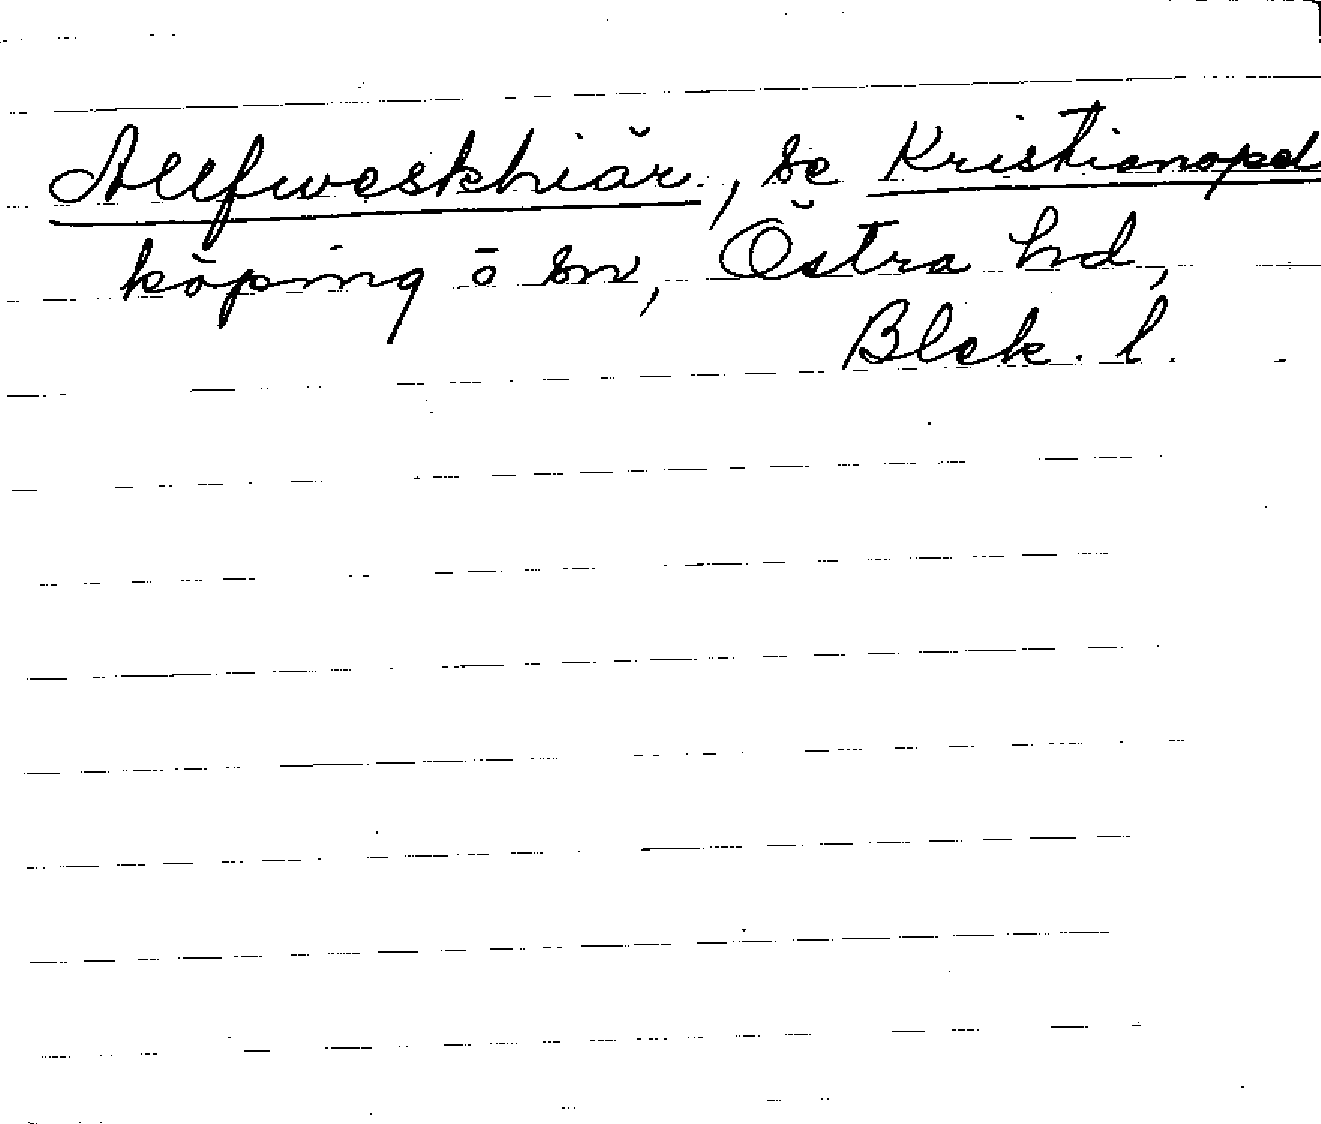 Allfweskhiär, se Kristianopel
köping o sn, Östra hd,
Blek. l.